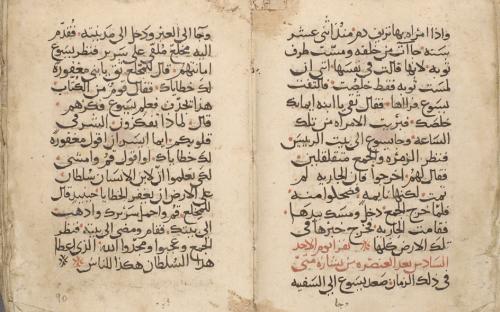 واذا امراه بها نزيف دم منذ اثني عشر
سنه جات من خلفه ومست طرف
ثوبه لانها قالت في نفسها انني ان
لمست ثوبه فقط خلصت فالتفت
يسوع فراها فقال ثقي يا ابنه ايمانك
خلصك فبريت الامراه من تلك
الساعه وجا يسوع الى بيت الرييس
فنظر الزمره والجمع متقلقلين
فقال لهم اخرجوا فان الجاريه لم
تمت لكنها نايمه فضحكوا منه
فلما خرج الجمع دخل ومسك بيدها
فقامت الجاريه فخرج خبرها في
تلك الارض كلها يوم الاحد
السادس بعد العنصره من بشاره متى
في ذلك الزمان صعد يسوع الى السفينه
وجا الى العبر ودخل الى مدينته فقدم
اليه مخلع ملقى على سرير فنظر يسوع
امانتهم قال للمخلع ثق يا بني مغفوره
لك خطاياك فقال قوم من الكتاب
هذا يجدف فعلم يسوع فكرهم
قال لماذا تفكرون الشر في
قلوبكم ايما ايسر ان اقول مغفوره
لك خطاياك او اقول قم وامشي
لكي تعلموا ان لابن الانسان سلطان
على الارض ان يغفر الخطايا حينيذ قال
للمخلع قم واحمل سريرك واذهب
الى بيتك فقام ومضى الى بيته فنظر
الجمع وعجبوا ومجدوا الله الذي اعطا
هذا السلطان هكذا للناس
90